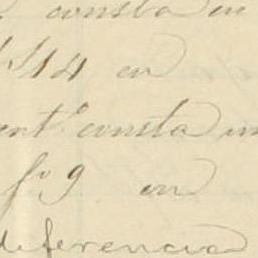 consta en
14 en
ent.e consta en
f.o 9 en
diferencia